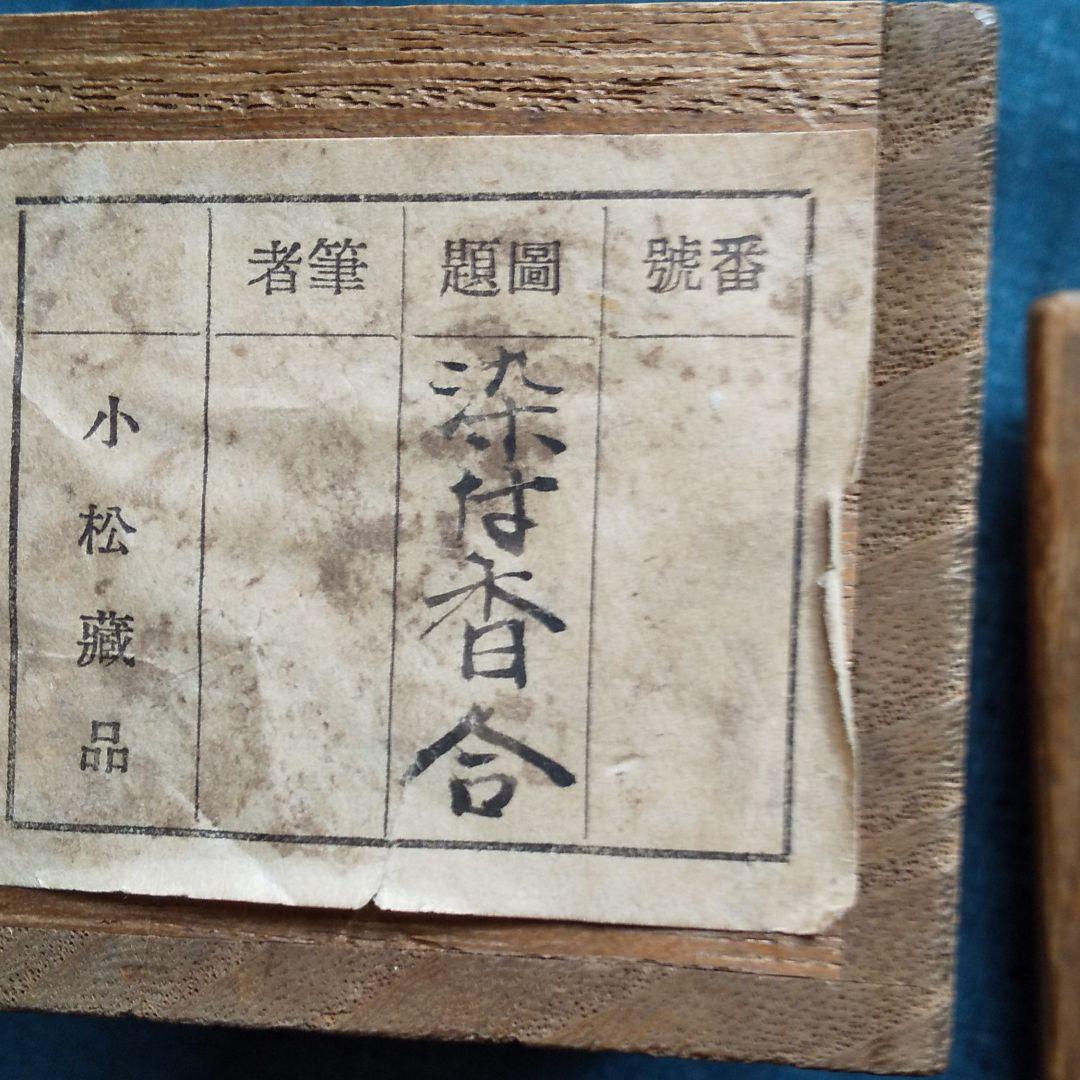 番號
圖題
染付香合
筆者
小松藏品